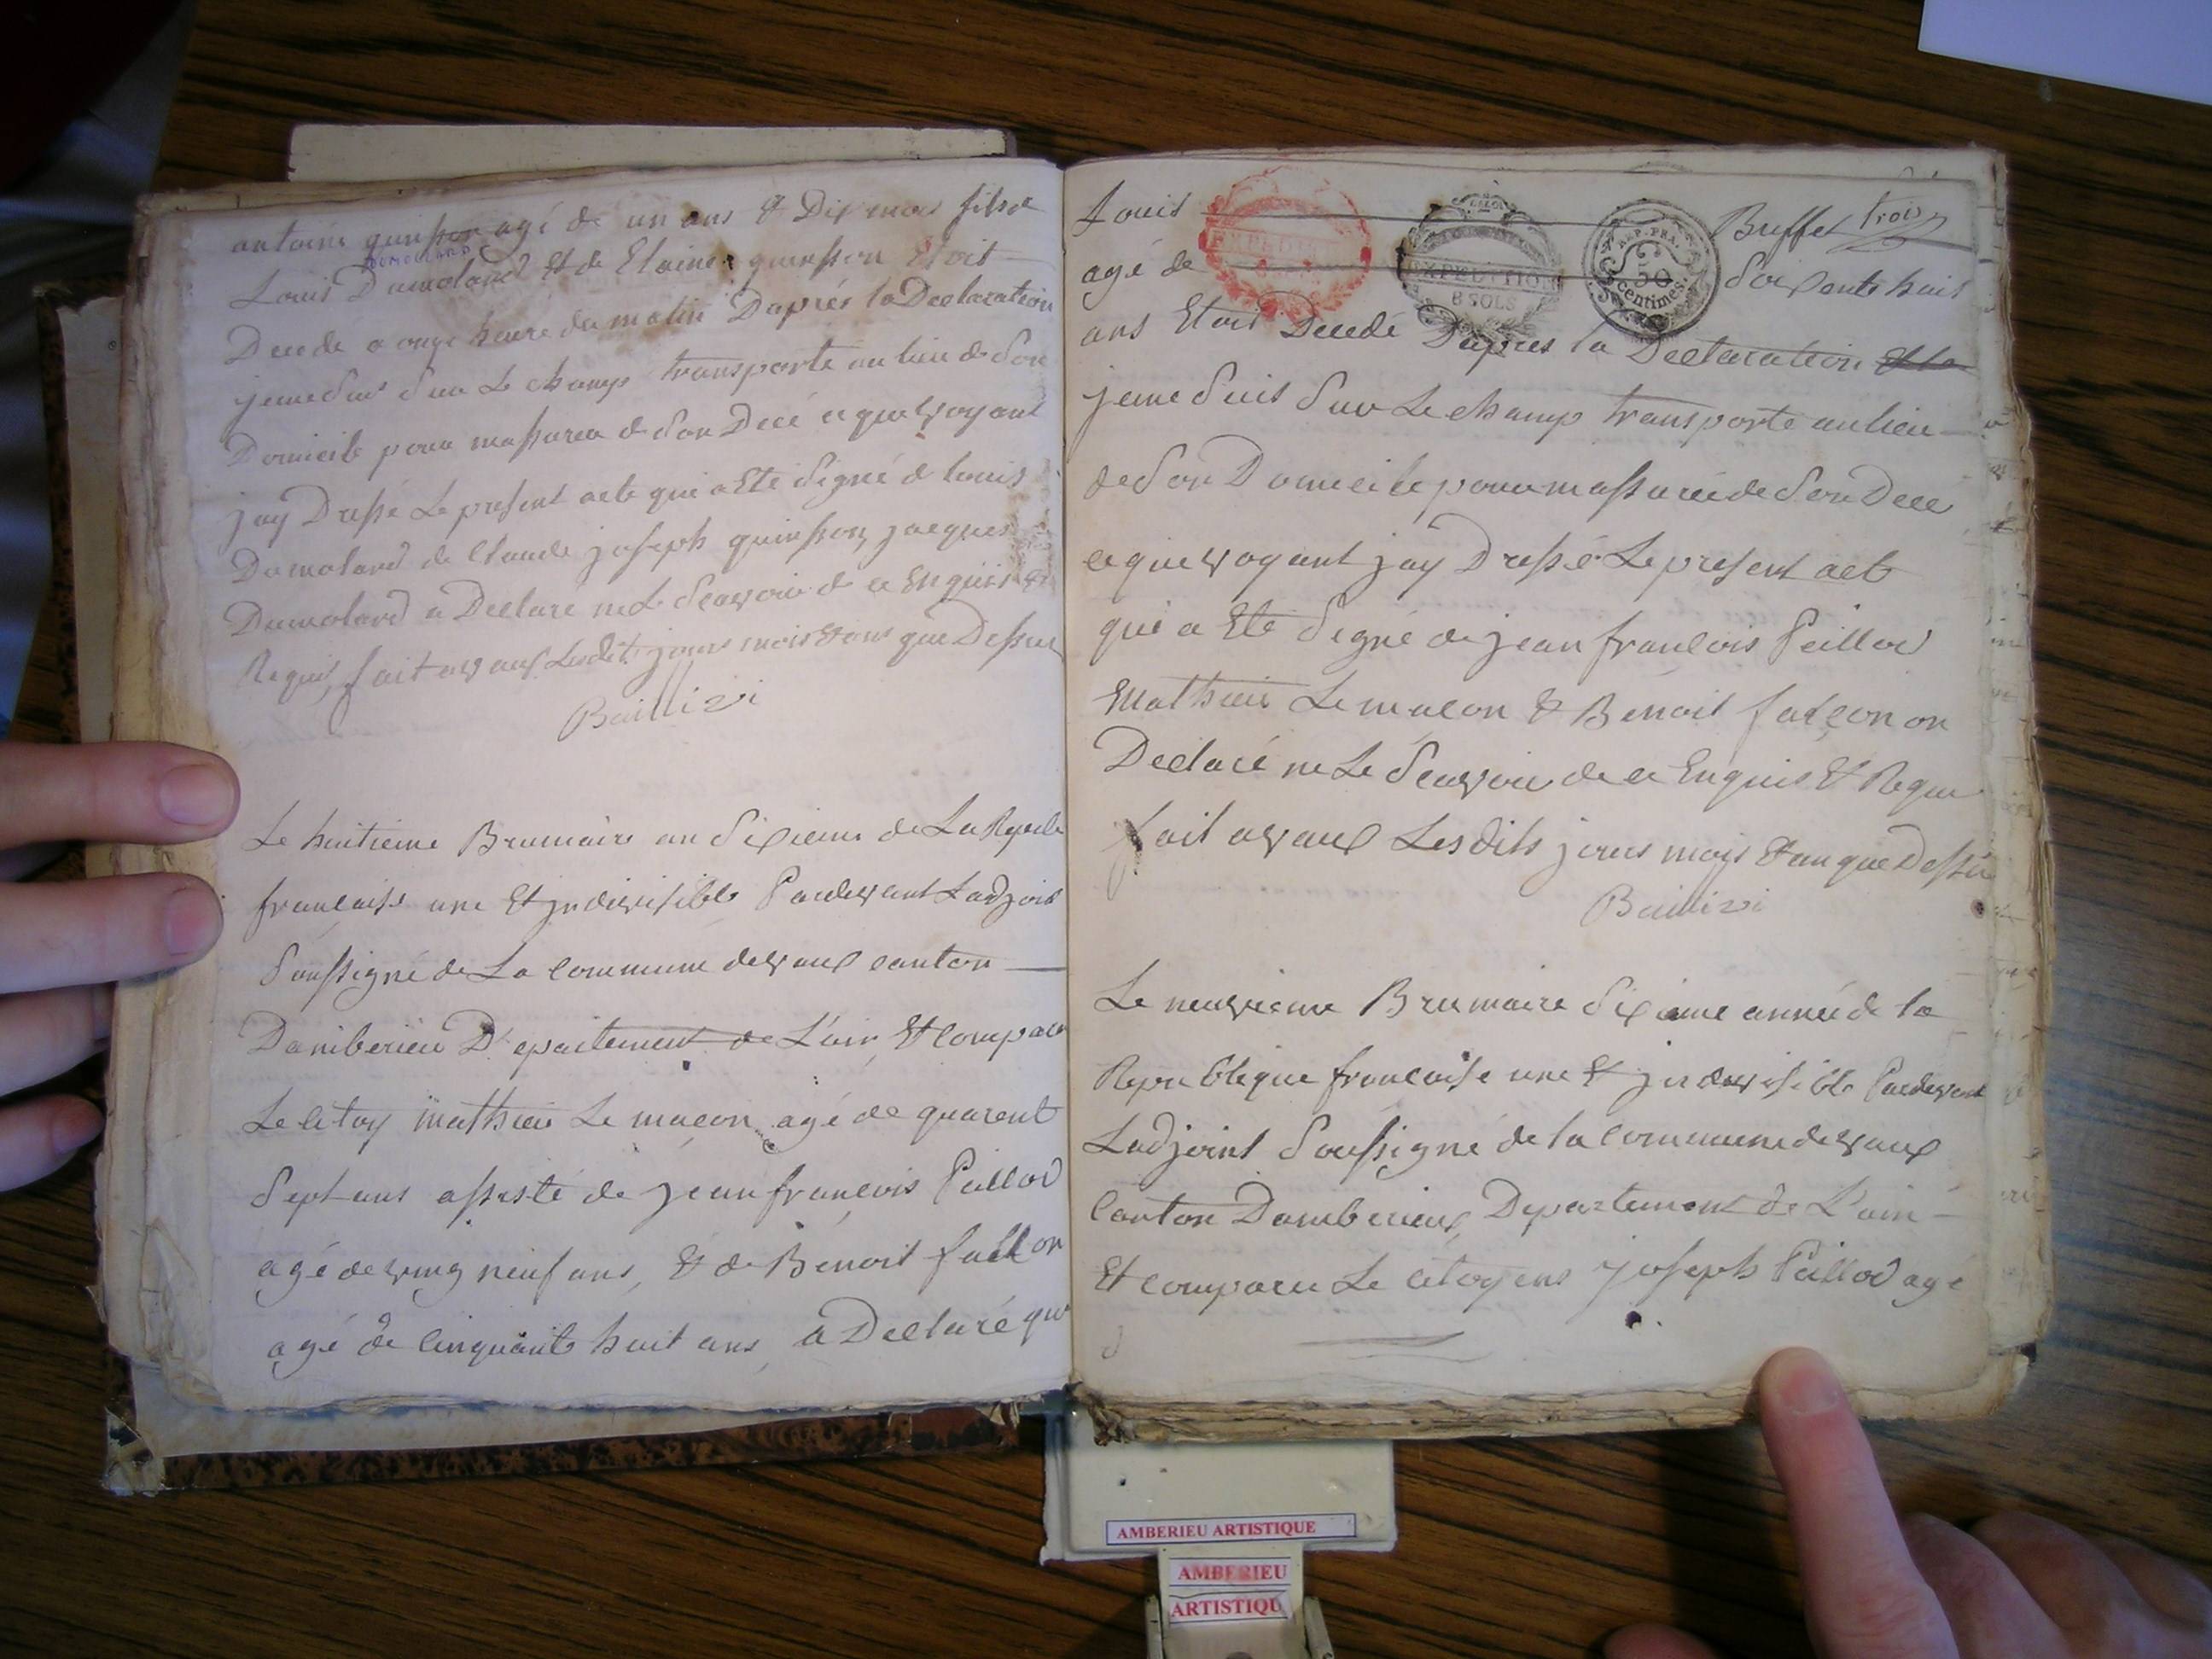 antoine quinsson agé de un ans & Dix mois fils de
Dumollard
Louis Dumolard et de Elaine quinsson Etoit
Decede a onze heure du matin Daprés la Declaration
jeme suis sur Le champ transporte au lieu de son
Domicile pour massurer de son Decé ceque voyant
jay Dressé Le present acte qui a Eté signé de louis
Dumolard de Claude joseph quinsson jacques
Dumolard a Declaré ne Le sçavoir de ce Enquis et
Requis, fait avaux Lesdit jours mois et ans que Dessus
Baillivi
Le huitieme Brumaire an dixieme de La Repub
francaise une Et jndivisible Pardevant Ladjoint
Soussigné de La Commune devaux canton
Damberieu Departement de L'ain Et Comparu
Le Citoy mathieu Le maçon agé de quarent
Sept ans assisté de jean francois Peillod
agé de ving neuf ans, & de Benoit falcon
agé de Cinquante huit ans, a Declaré que
Louis Buffet trois
EXPEDITION
EXPEDITION
8 SOLS
REP. FRA.
50
centimes
agé de soixante huit
ans Etoit Decedé Dapres la Declaration Et la
jeme suis sur Le champ transporte aulieu
de son Domicile pour massurer de son Decé
ceque voyant jay Dressé Le present acte
qui a Eté signé de jean francois Peillod
Mathieu Le maçon & Benoit falcon on
Declaré ne Le sçavoir de ce Enquis & Requi
fait avaux Lesdits jours mois & an que Dessu
Baillivi
Le neuvieme Brumaire dixieme année de la
Republique francaise une & jndivisible Pardevant
Ladjoint Soussigné de la Commune devaux
Canton Damberieux Departement de L'ain
Et comparu Le Citoyens joseph Peillod agé
AMBERIEU ARTISTIQUE
AMBERIEU
ARTISTIQU